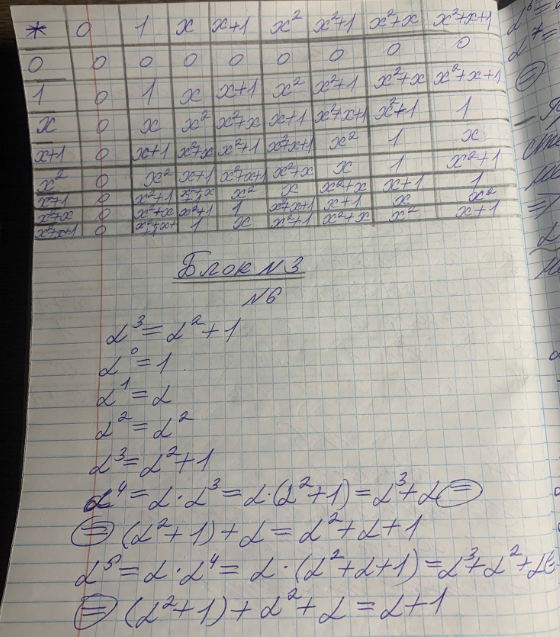 * 0 1 x x+1 x² x²+1 x²+x x²+x+1
0 0 0 0 0 0 0 0 0
1 0 1 x x+1 x² x²+1 x²+x x²+x+1
x 0 x x² x²+x x+1 x²+x+1 x²+1 1
x+1 0 x+1 x²+x x²+1 x²+x+1 x² 1 x
x² 0 x² x+1 x²+x+1 x²+x x 1 x²+1
x²+1 0 x²+1 x² x x²+x x+1 1
x²+x 0 x²+x x²+1 1 x²+x+1 x+1 x x²
x²+x+1 0 x²+x+1 1 x x²+1 x²+x x² x+1
Блок N3
N6
α³ = α² + 1
α⁰ = 1
α¹ = α
α² = α²
α³ = α² + 1
α⁴ = α · α³ = α · (α² + 1) = α³ + α =
= (α² + 1) + α = α² + α + 1
α⁵ = α · α⁴ = α · (α² + α + 1) = α³ + α² + α =
= (α² + 1) + α² + α = α + 1